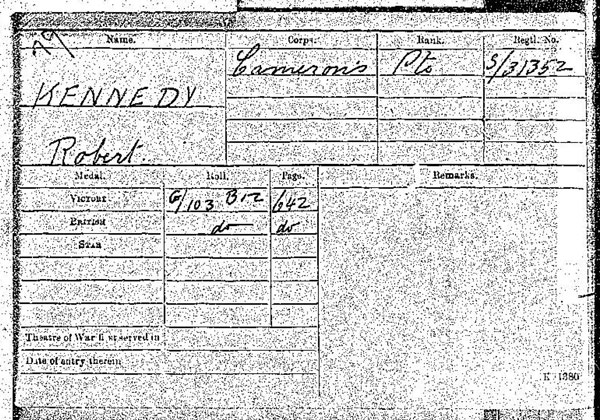 79
Name. Corps. Rank. Regtl. No.
Camerons Pte S/31352
KENNEDY
Robert.
Medal. Roll. Page. Remarks.
VICTORY G/103 B12 642
BRITISH do do
STAR
Theatre of War first served in
Date of entry therein
K 1380